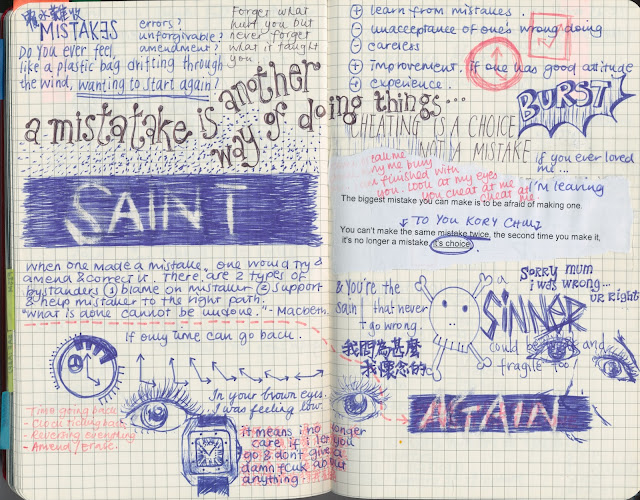 覆水難收
MISTAKES
errors?
unforgivable?
amendment?
Forget what
hurt you but
never forget
what it taught
you
Do you ever feel,
like a plastic bag drifting through
the wind, wanting to start again?
a mistatake is another
way of doing things...
SAINT
When one made a mistake, one would try 2
amend & correct it. There are 2 types of
bystanders ① blame on mistaker ② support
& help mistaker to the right path.
"What is done cannot be undone." - Macbeth.
If only time can go back.
Time going back
- Clock ticking back
- Reversing everything
- Amend / Erase.
In your brown eyes.
I was feeling low.
it means i no longer
care if i let you
go & don't give a
damn fcuk about
anything.
+ learn from mistakes.
- unacceptance of one's wrong doing
- careless
+ improvement. if one has good attitude
+ experience.
BURST
CHEATING IS A CHOICE
NOT A MISTAKE
if you ever loved
me...
I'm leaving
call me
finished with
you. Look at my eyes
you cheat at me
cheat me
The biggest mistake you can make is to be afraid of making one.
TO YOU KORY
You can't make the same mistake twice, the second time you make it,
it's no longer a mistake, it's choice.
& You're the
saint that never
go wrong.
a
SINNER
could be and
fragile too
Sorry mum
i was wrong...
ur right
我問為甚麼
我懷念的
AGAIN